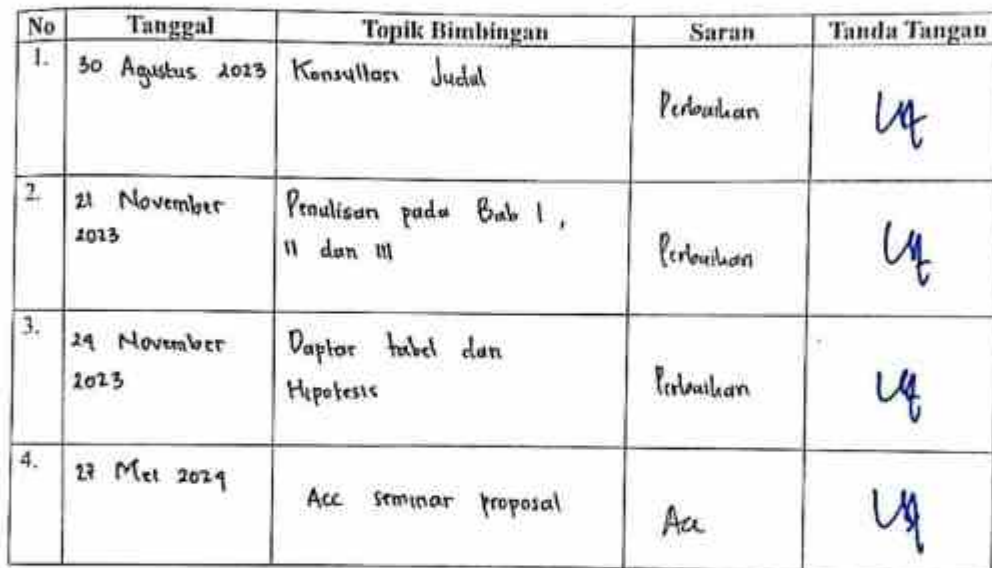 No Tanggal Topik Bimbingan Saran Tanda Tangan
1. 30 Agustus 2023 Konsultasi Judul Perbaikan
2. 21 November 2023 Penulisan pada Bab I, II dan III Perbaikan
3. 24 November 2023 Daptar tabel dan Hipotesis Perbaikan
4. 27 Mei 2024 Acc seminar proposal Acc